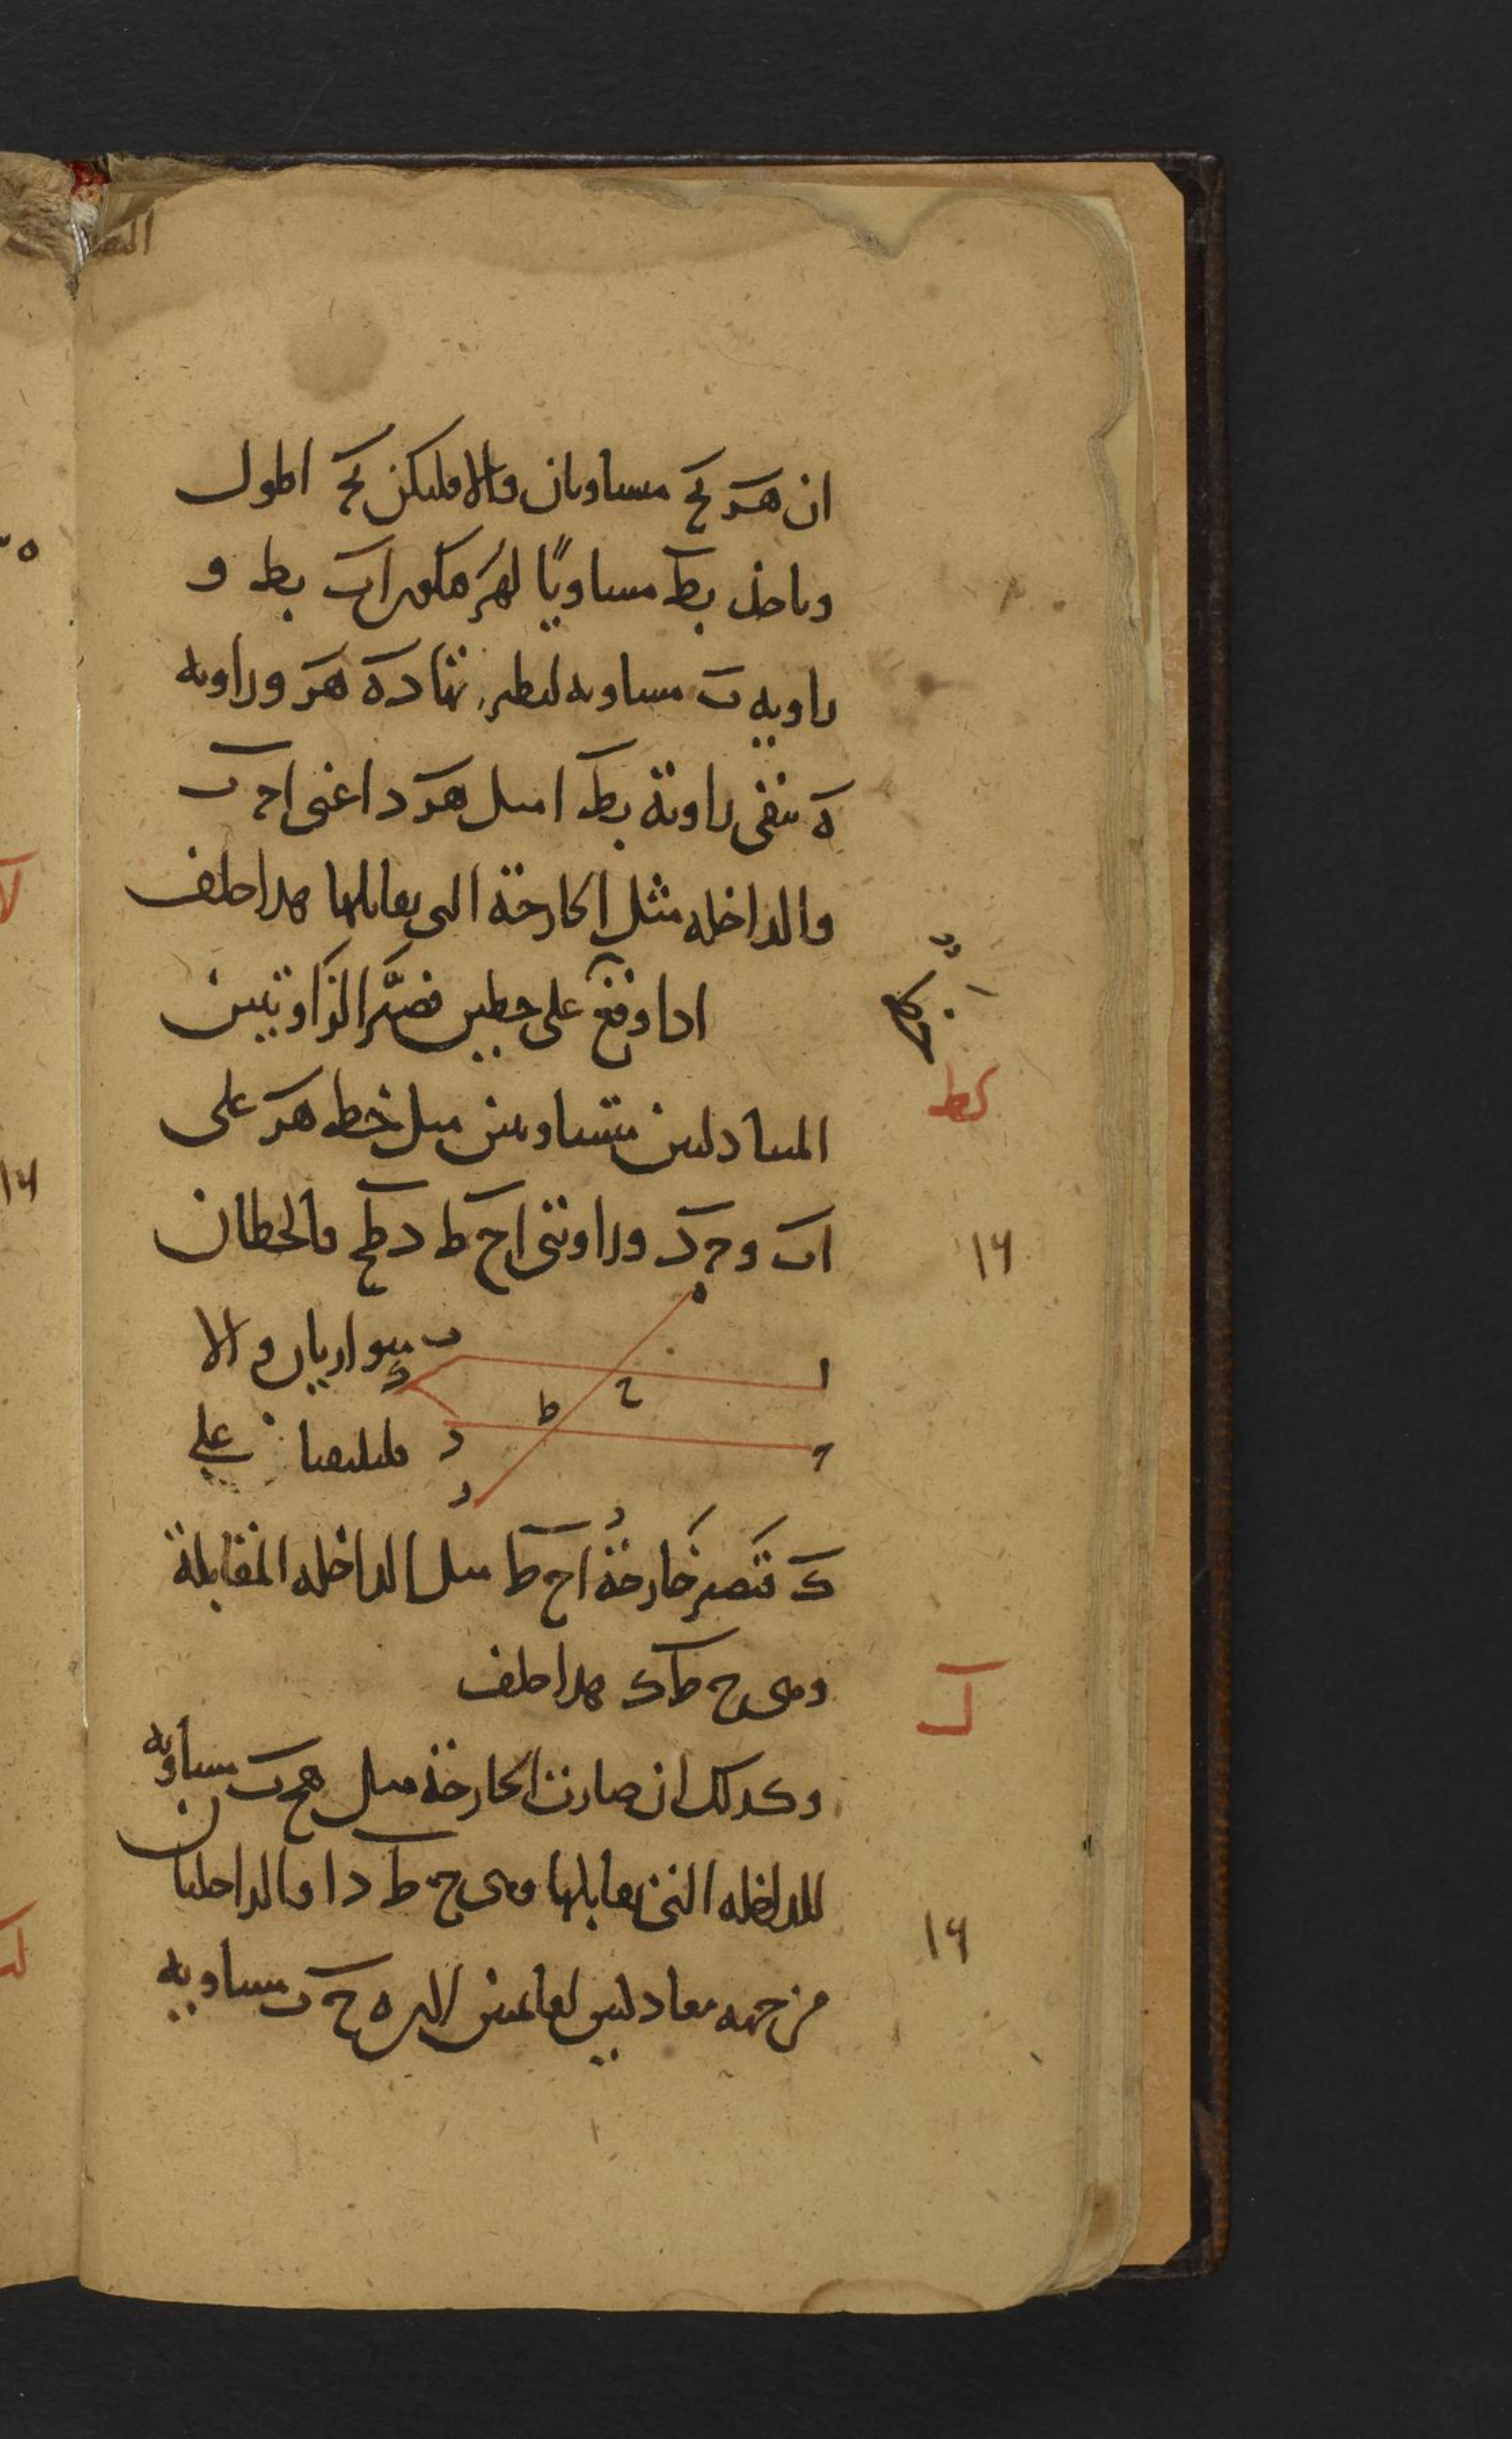 ان هز بج مساويان والا فليكن بج اطول
وناخذ بط مساويًا لهز فيكون اب بط و
زاويه ب مساويه لنظيرتها ده هز وزاويه
ه فتبقى زاوية بط ا مثل هز د اعنى اج ب
والداخله مثل الخارجة التى تقابلها هذا خلف
اذا وقع على خطين فصيّر الزاويتين
كط
المتبادلتين متساويتين مثل خط هز على
اب و جد وزاويتى اح ط دطح فالخطان
١٦
ه
ب متوازيان والا
ا
ك
ح
ط
فليلتقيا على
د
ج
ز
ك فتصير خارجة اح ط مثل الداخله المقابلة
وهى ح ط ك هذا خلف
ل
وكذلك ان صارت الخارجة مثل هح ب مساويه
للداخله التى تقابلها وهى ح ط د او الداخلتان
١٦
من جهه معادلتين لقائمتين لان ه ح ب مساويه